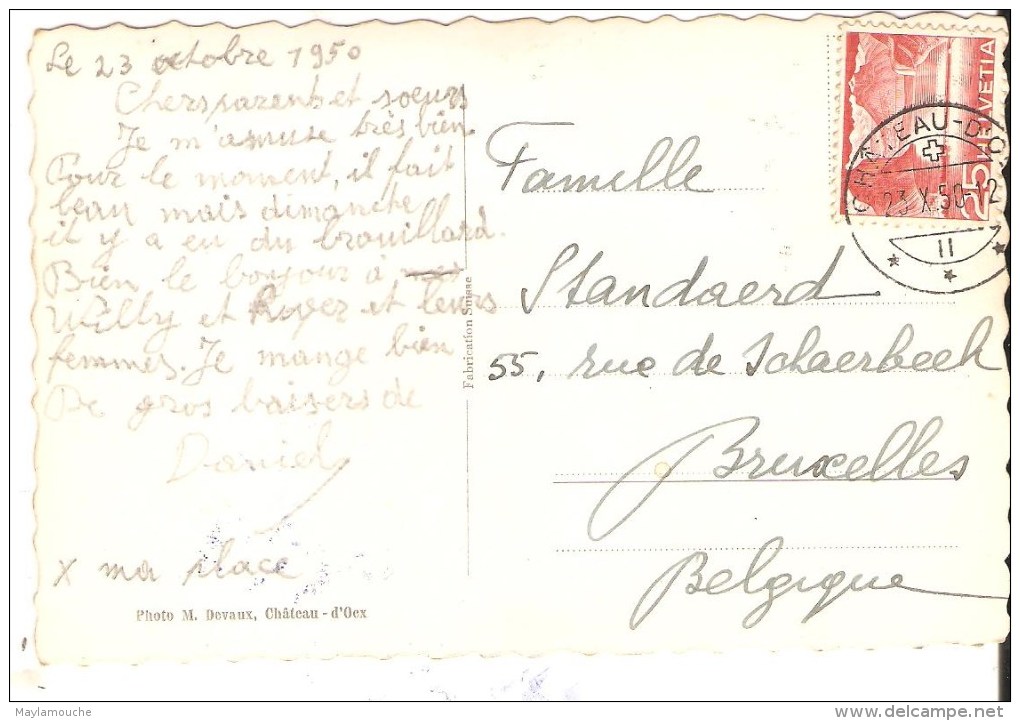 Le 23 octobre 1950
Chers parents et soeurs
Je m'amuse très bien.
Pour le moment, il fait
beau mais dimanche
il y a eu du brouillard.
Bien le bonjour à
Willy et Roger et leurs
femmes. Je mange bien
De gros baisers de
Daniel
x ma place
Photo M. Devaux, Château-d'Oex
Fabrication Suisse
HELVETIA
25
CHÂTEAU-D'O
23.X.50-12
II
Famille
Standaerd
55, rue de Schaerbeek
Bruxelles
Belgique
Maylamouche
www.delcampe.net